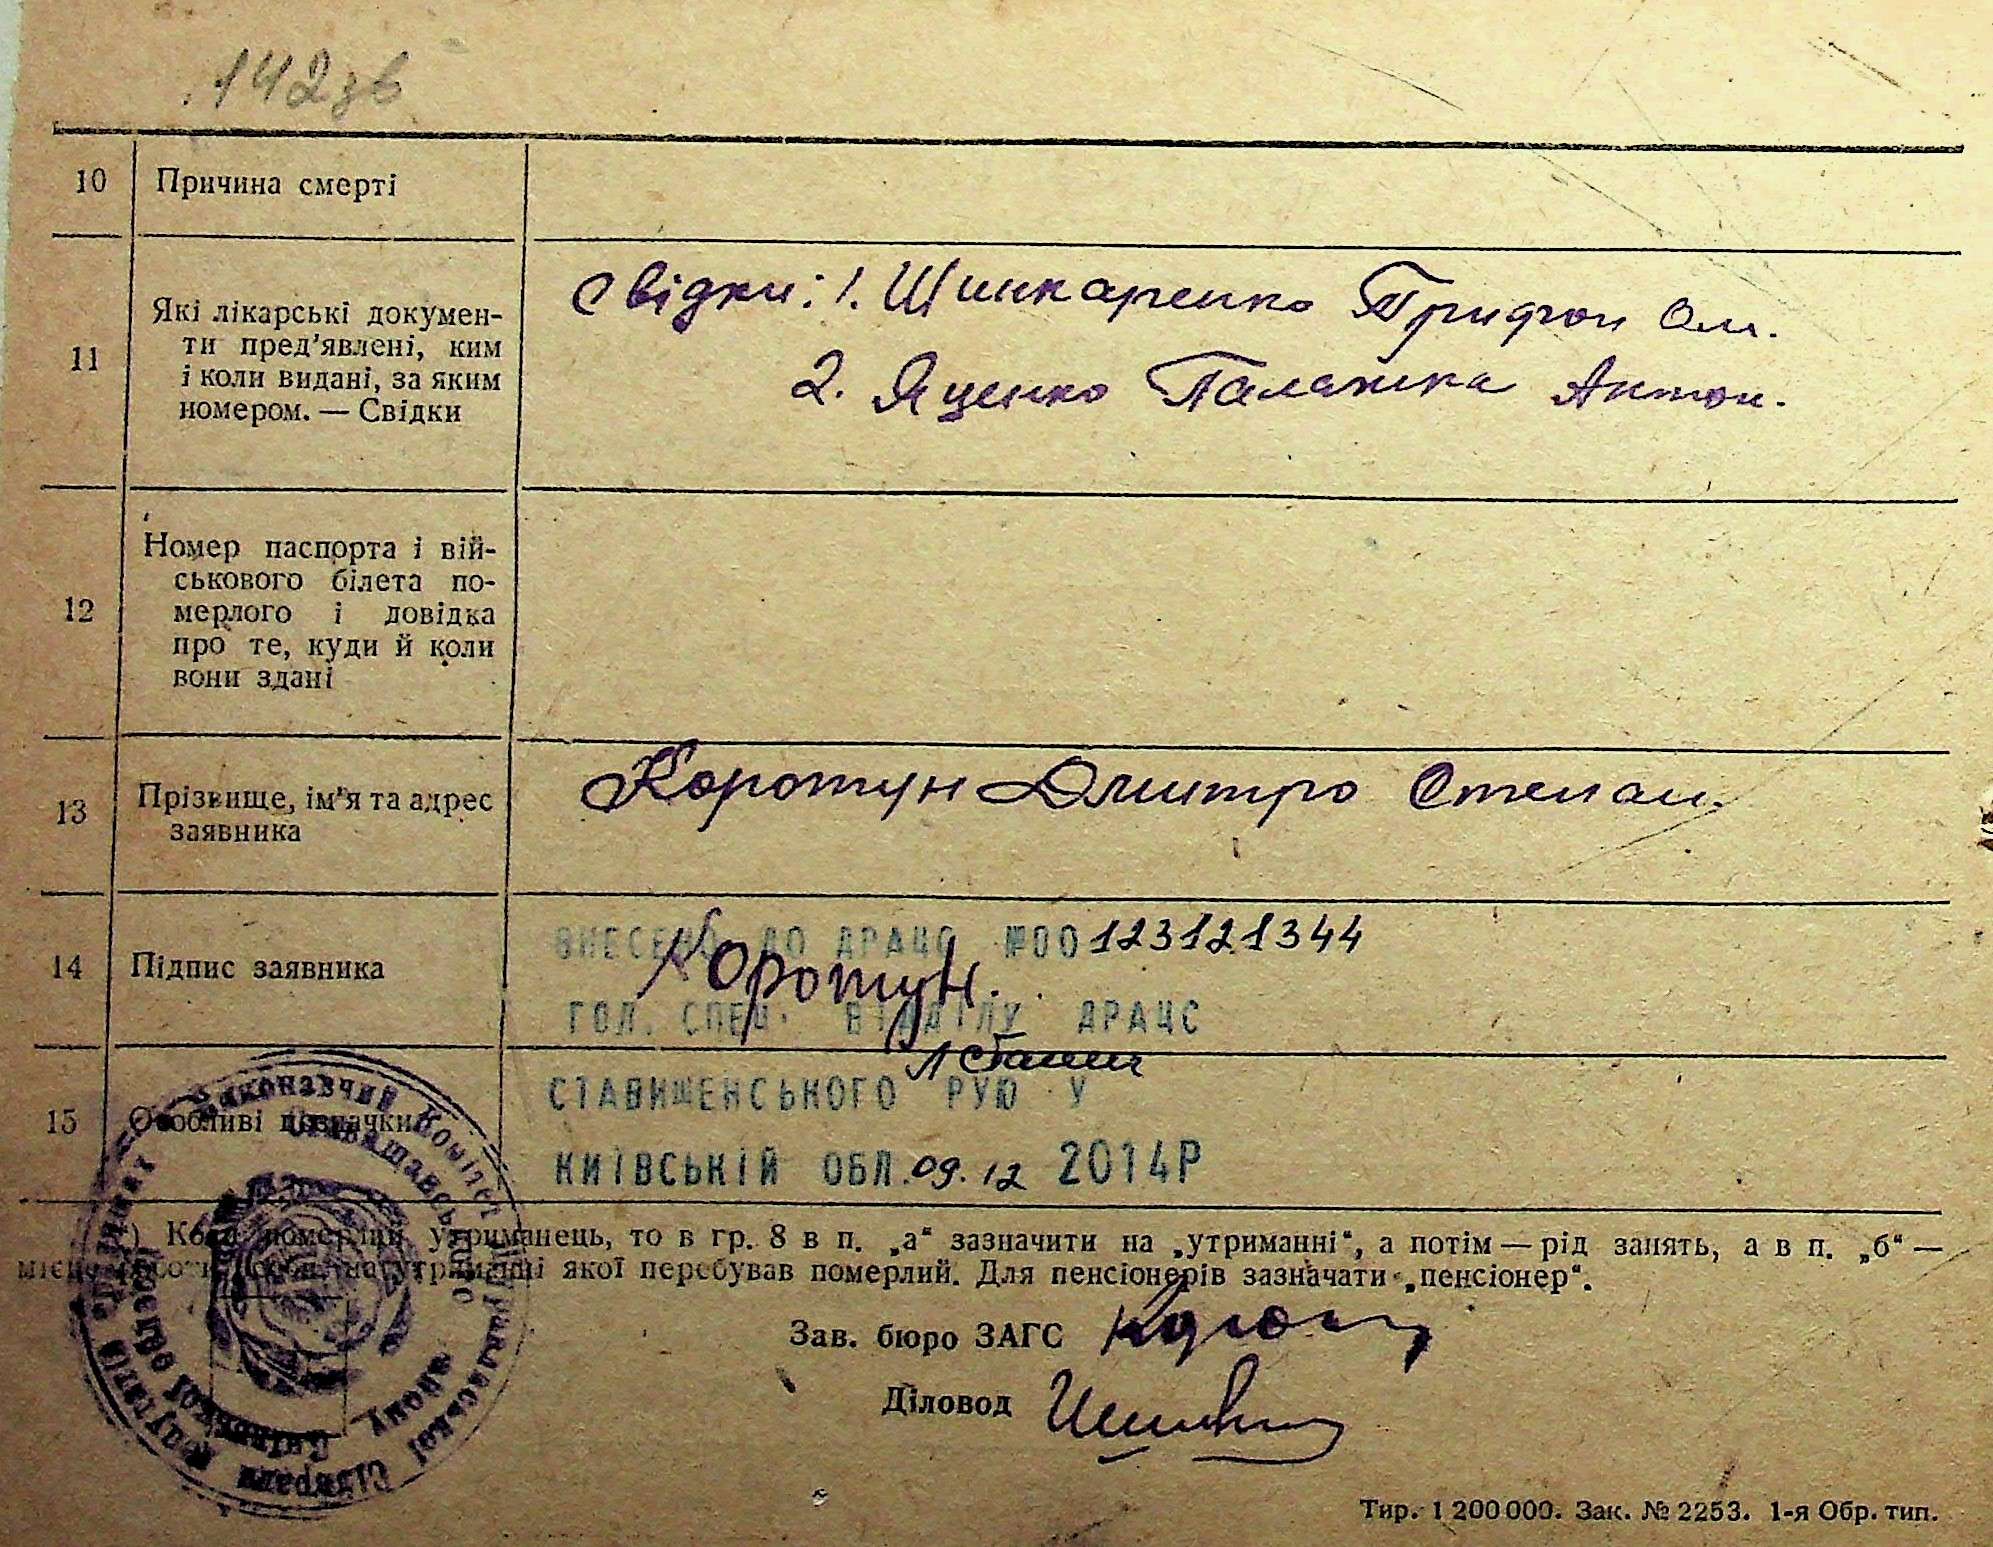 142 зв
10 Причина смерті
11 Які лікарські докумен-
ти пред'явлені, ким
і коли видані, за яким
номером. — Свідки
Свідки: 1. Шинкаренко Трифон Ол.
2. Яценко Палажка Антон.
12 Номер паспорта і вій-
ськового білета по-
мерлого і довідка
про те, куди й коли
вони здані
13 Прізвище, ім'я та адрес
заявника
Коротун Дмитро Степан.
14 Підпис заявника
ВНЕСЕНО ДО ДРАЦС №00123121344
Коротун.
ГОЛ. СПЕЦ. ВІДДІЛУ ДРАЦС
15 Особливі позначки
СТАВИЩЕНСЬКОГО РУЮ У
КИЇВСЬКІЙ ОБЛ. 09.12 2014Р
Виконавчий Комітет Пігралівської Сільради Депутатів
Київської області
) Коли померлий утриманець, то в гр. 8 в п. „а“ зазначити на „утриманні“, а потім — рід занять, а в п. „б“ —
місце роботи особи, на утриманні якої перебував померлий. Для пенсіонерів зазначати „пенсіонер“.
Зав. бюро ЗАГС
Діловод
Тир. 1 200 000. Зак. № 2253. 1-я Обр. тип.